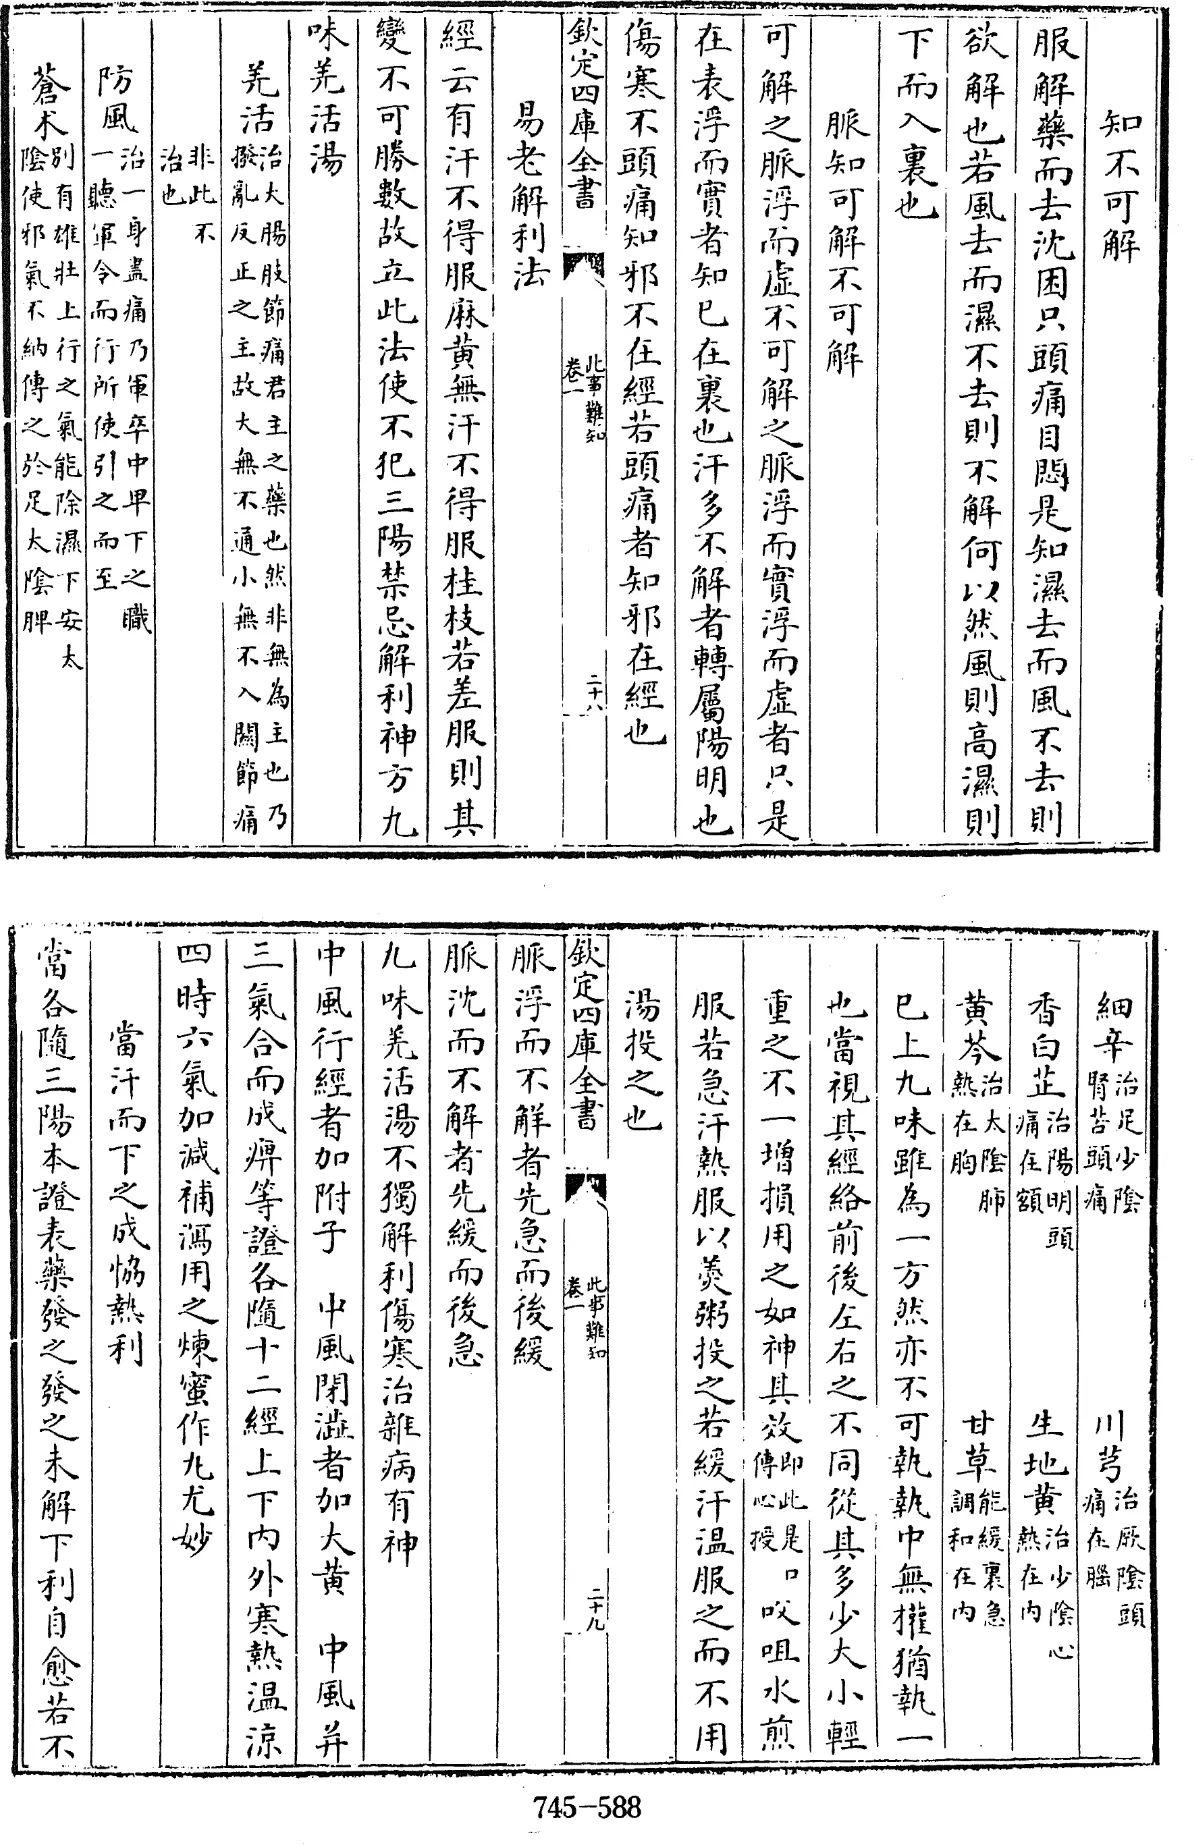 知不可解
服解藥而去沈困只頭痛目悶是知濕去而風不去則
欲解也若風去而濕不去則不解何以然風則高濕則
下而入裏也
脈知可解不可解
可解之脈浮而虛不可解之脈浮而實浮而虛者只是
在表浮而實者知已在裏也汗多不解者轉屬陽明也
傷寒不頭痛知邪不在經若頭痛者知邪在經也
欽定四庫全書
此事難知
卷一
二十八
易老解利法
經云有汗不得服麻黃無汗不得服桂枝若差服則其
變不可勝數故立此法使不犯三陽禁忌解利神方九
味羌活湯
羌活治太陽肢節痛君主之藥也然非無為主也乃
撥亂反正之主故大無不通小無不入關節痛
非此不
治也
防風治一身盡痛乃軍卒中卑下之職
一聽軍令而行所使引之而至
蒼术別有雄壯上行之氣能除濕下安太
陰使邪氣不納傳之於足太陰脾
細辛治足少陰
腎苦頭痛
川芎治厥陰頭
痛在腦
香白芷治陽明頭
痛在額
生地黃治少陰心
熱在內
黃芩治太陰肺
熱在胸
甘草能緩裏急
調和在內
已上九味雖為一方然亦不可執執中無權猶執一
也當視其經絡前後左右之不同從其多少大小輕
重之不一增損用之如神其效即此是口
傳心授㕮咀水煎
服若急汗熱服以羹粥投之若緩汗溫服之而不用
湯投之也
欽定四庫全書
此事難知
卷一
二十九
脈浮而不解者先急而後緩
脈沈而不解者先緩而後急
九味羌活湯不獨解利傷寒治雜病有神
中風行經者加附子 中風閉澁者加大黃 中風并
三氣合而成痹等證各隨十二經上下內外寒熱溫涼
四時六氣加減補瀉用之煉蜜作丸尤妙
當汗而下之成恊熱利
當各隨三陽本證表藥發之發之未解下利自愈若不
745-588